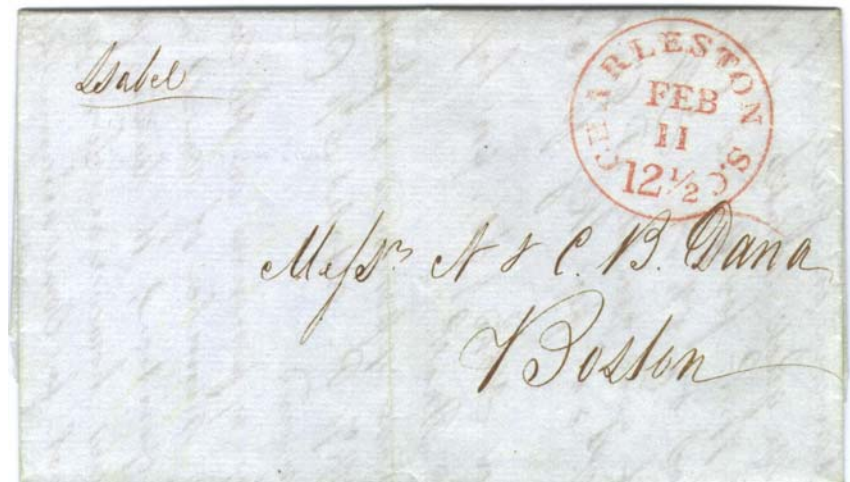 Isabel
CHARLESTON S.C.
FEB
11
12½
Messrs N & C. B. Dana
Boston